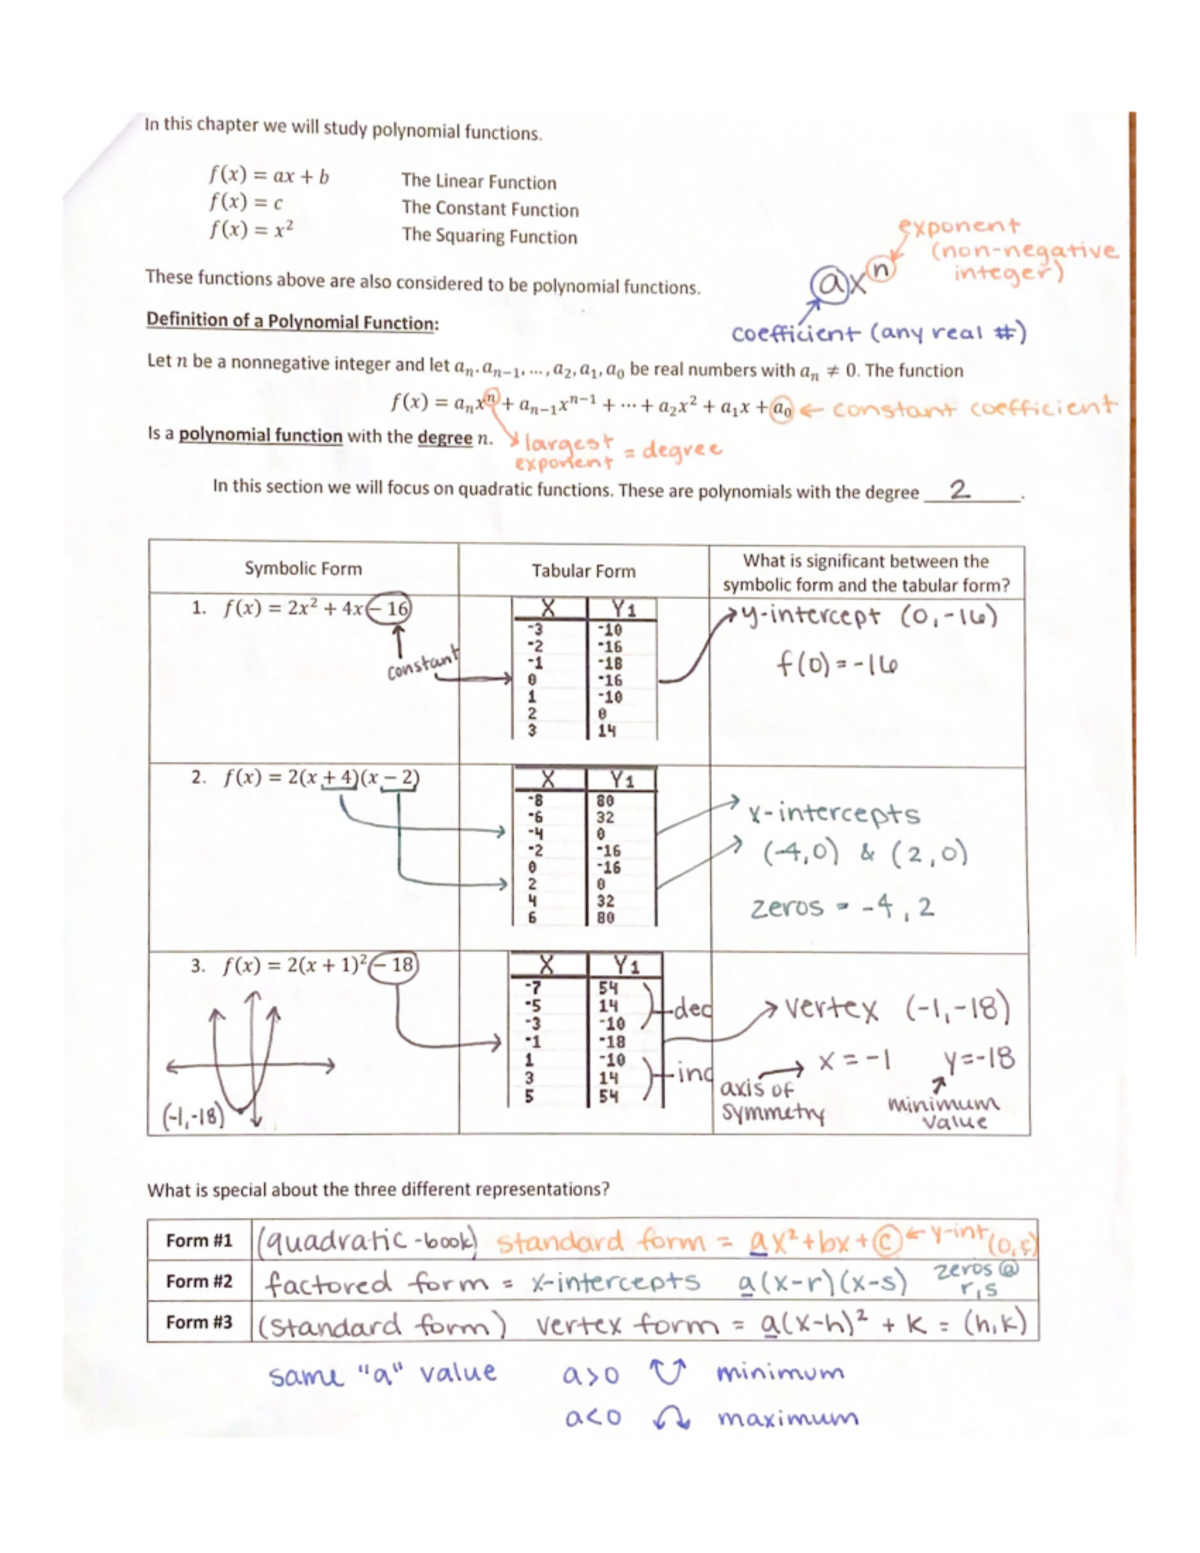 In this chapter we will study polynomial functions.
f(x) = ax + b The Linear Function
f(x) = c The Constant Function
f(x) = x² The Squaring Function
exponent
(non-negative
integer)
axⁿ
These functions above are also considered to be polynomial functions.
coefficient (any real #)
Definition of a Polynomial Function:
Let n be a nonnegative integer and let aₙ, aₙ₋₁, ..., a₂, a₁, a₀ be real numbers with aₙ ≠ 0. The function
f(x) = aₙxⁿ + aₙ₋₁xⁿ⁻¹ + ⋯ + a₂x² + a₁x + a₀ ← constant coefficient
Is a polynomial function with the degree n.
largest
exponent = degree
In this section we will focus on quadratic functions. These are polynomials with the degree 2.
Symbolic Form
Tabular Form
What is significant between the
symbolic form and the tabular form?
1. f(x) = 2x² + 4x - 16
constant
X Y1
-3 -10
-2 -16
-1 -18
0 -16
1 -10
2 0
3 14
y-intercept (0,-16)
f(0) = -16
2. f(x) = 2(x + 4)(x - 2)
X Y1
-8 80
-6 32
-4 0
-2 -16
0 -16
2 0
4 32
6 80
x-intercepts
(-4,0) & (2,0)
zeros = -4, 2
3. f(x) = 2(x + 1)² - 18
(-1,-18)
X Y1
-7 54
-5 14
-3 -10
-1 -18
1 -10
3 14
5 54
dec
inc
vertex (-1,-18)
x = -1 y=-18
axis of
symmetry
minimum
value
What is special about the three different representations?
Form #1 (quadratic-book) standard form = ax²+bx+c ← y-int (0,c)
Form #2 factored form = x-intercepts a(x-r)(x-s) zeros @
r,s
Form #3 (standard form) vertex form = a(x-h)² + k = (h,k)
same "a" value a>0 minimum
a<0 maximum